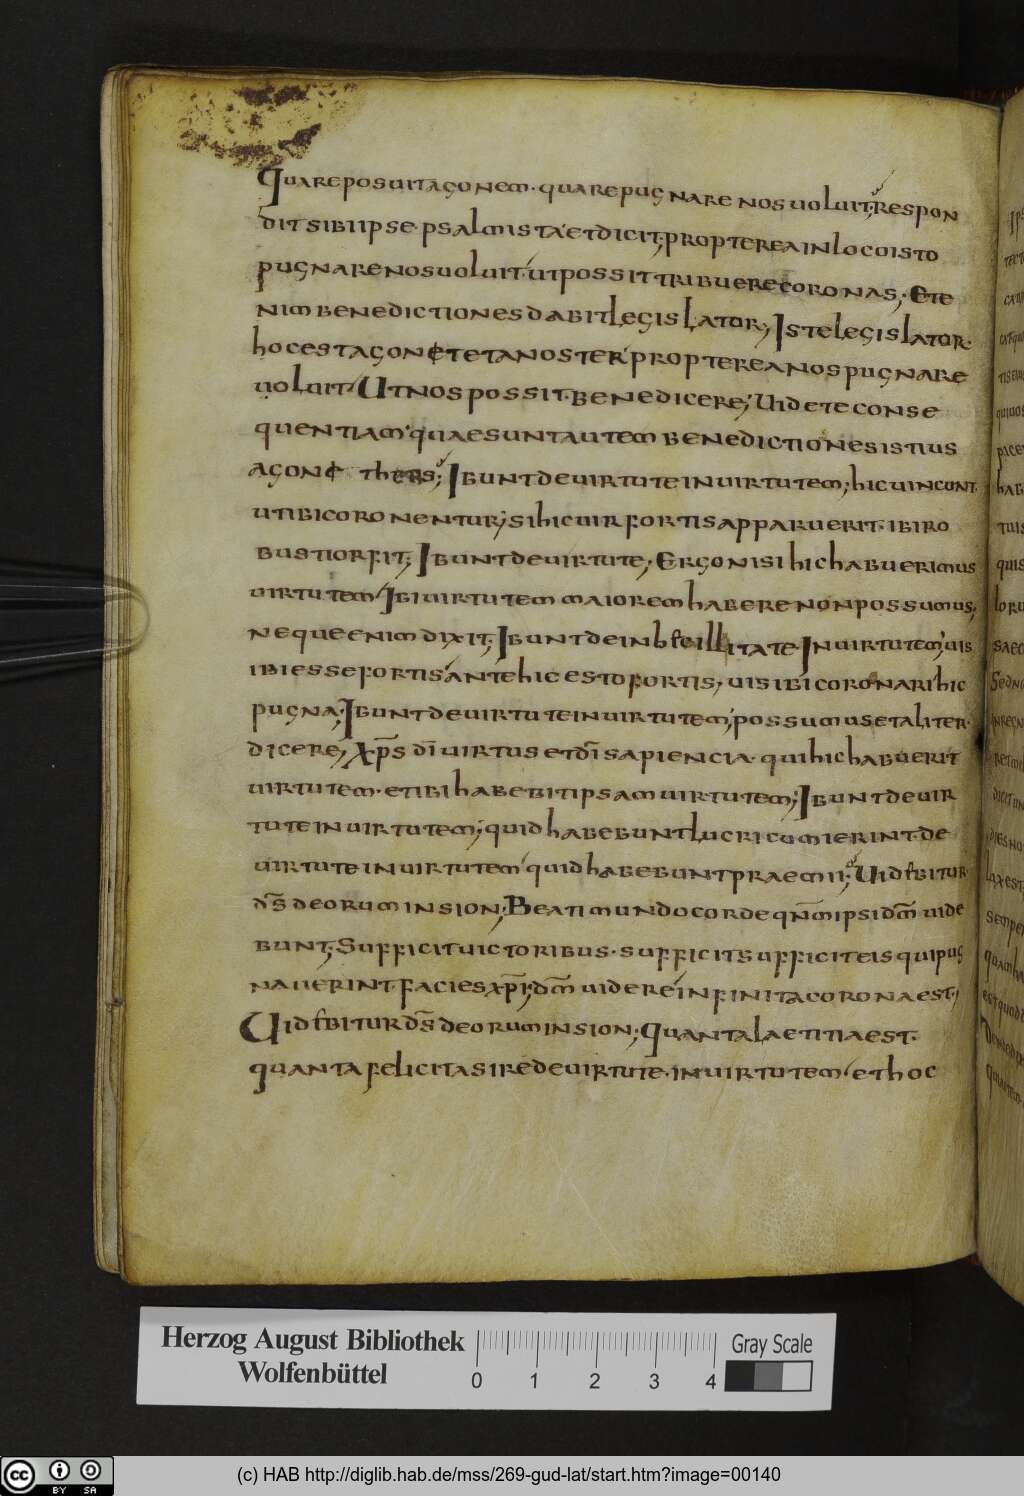 Quare posuit agonem · quare pugnare nos uoluit; Respon
dit sibi ipse psalmista et dicit; propterea in loco isto
pugnare nos uoluit ut possit tribuere coronas; Ete
nim benedictiones dabit legislator; Iste legislator ·
hoc est agonoteta noster propterea nos pugnare
uoluit Ut nos possit benedicere; Uidete conse
quentiam quae sunt autem benedictiones istius
agon thetes; Ibunt de uirtute in uirtutem; hic uincunt
ut ibi coronentur; si hic uir fortis apparuerit · ibi ro
bustior fit; Ibunt de uirtute; Ergo nisi hic habuerimus
uirtutem Ibi uirtutem maiorem habere non possumus;
neque enim dixit; Ibunt de inbecillitate In uirtutem uis
ibi esse fortis ante hic esto fortis, uis ibi coronari hic
pugna; Ibunt de uirtute in uirtutem; possumus et aliter ·
dicere; xp̄s dī uirtus et dī sapiencia · qui hic habuerit
uirtutem · et ibi habebit ipsam uirtutem; Ibunt de uir
tute in uirtutem; quid habebunt lucri cum ierint de
uirtute in uirtutem quid habebunt praemii; Uidebitur
d̄s deorum in sion; Beati mundo corde qn̄m ipsi dm̄ uide
bunt; Sufficit uictoribus · sufficit sufficit eis qui pug
nauerint · facies xp̄i; dm̄ uidere infinita corona est;
Uidebitur d̄s deorum in sion; quanta laetitia est ·
quanta felicitas ire de uirtute · in uirtutem et hoc
Herzog August Bibliothek
Wolfenbüttel
0 1 2 3 4
Gray Scale
cc BY SA
(c) HAB http://diglib.hab.de/mss/269-gud-lat/start.htm?image=00140